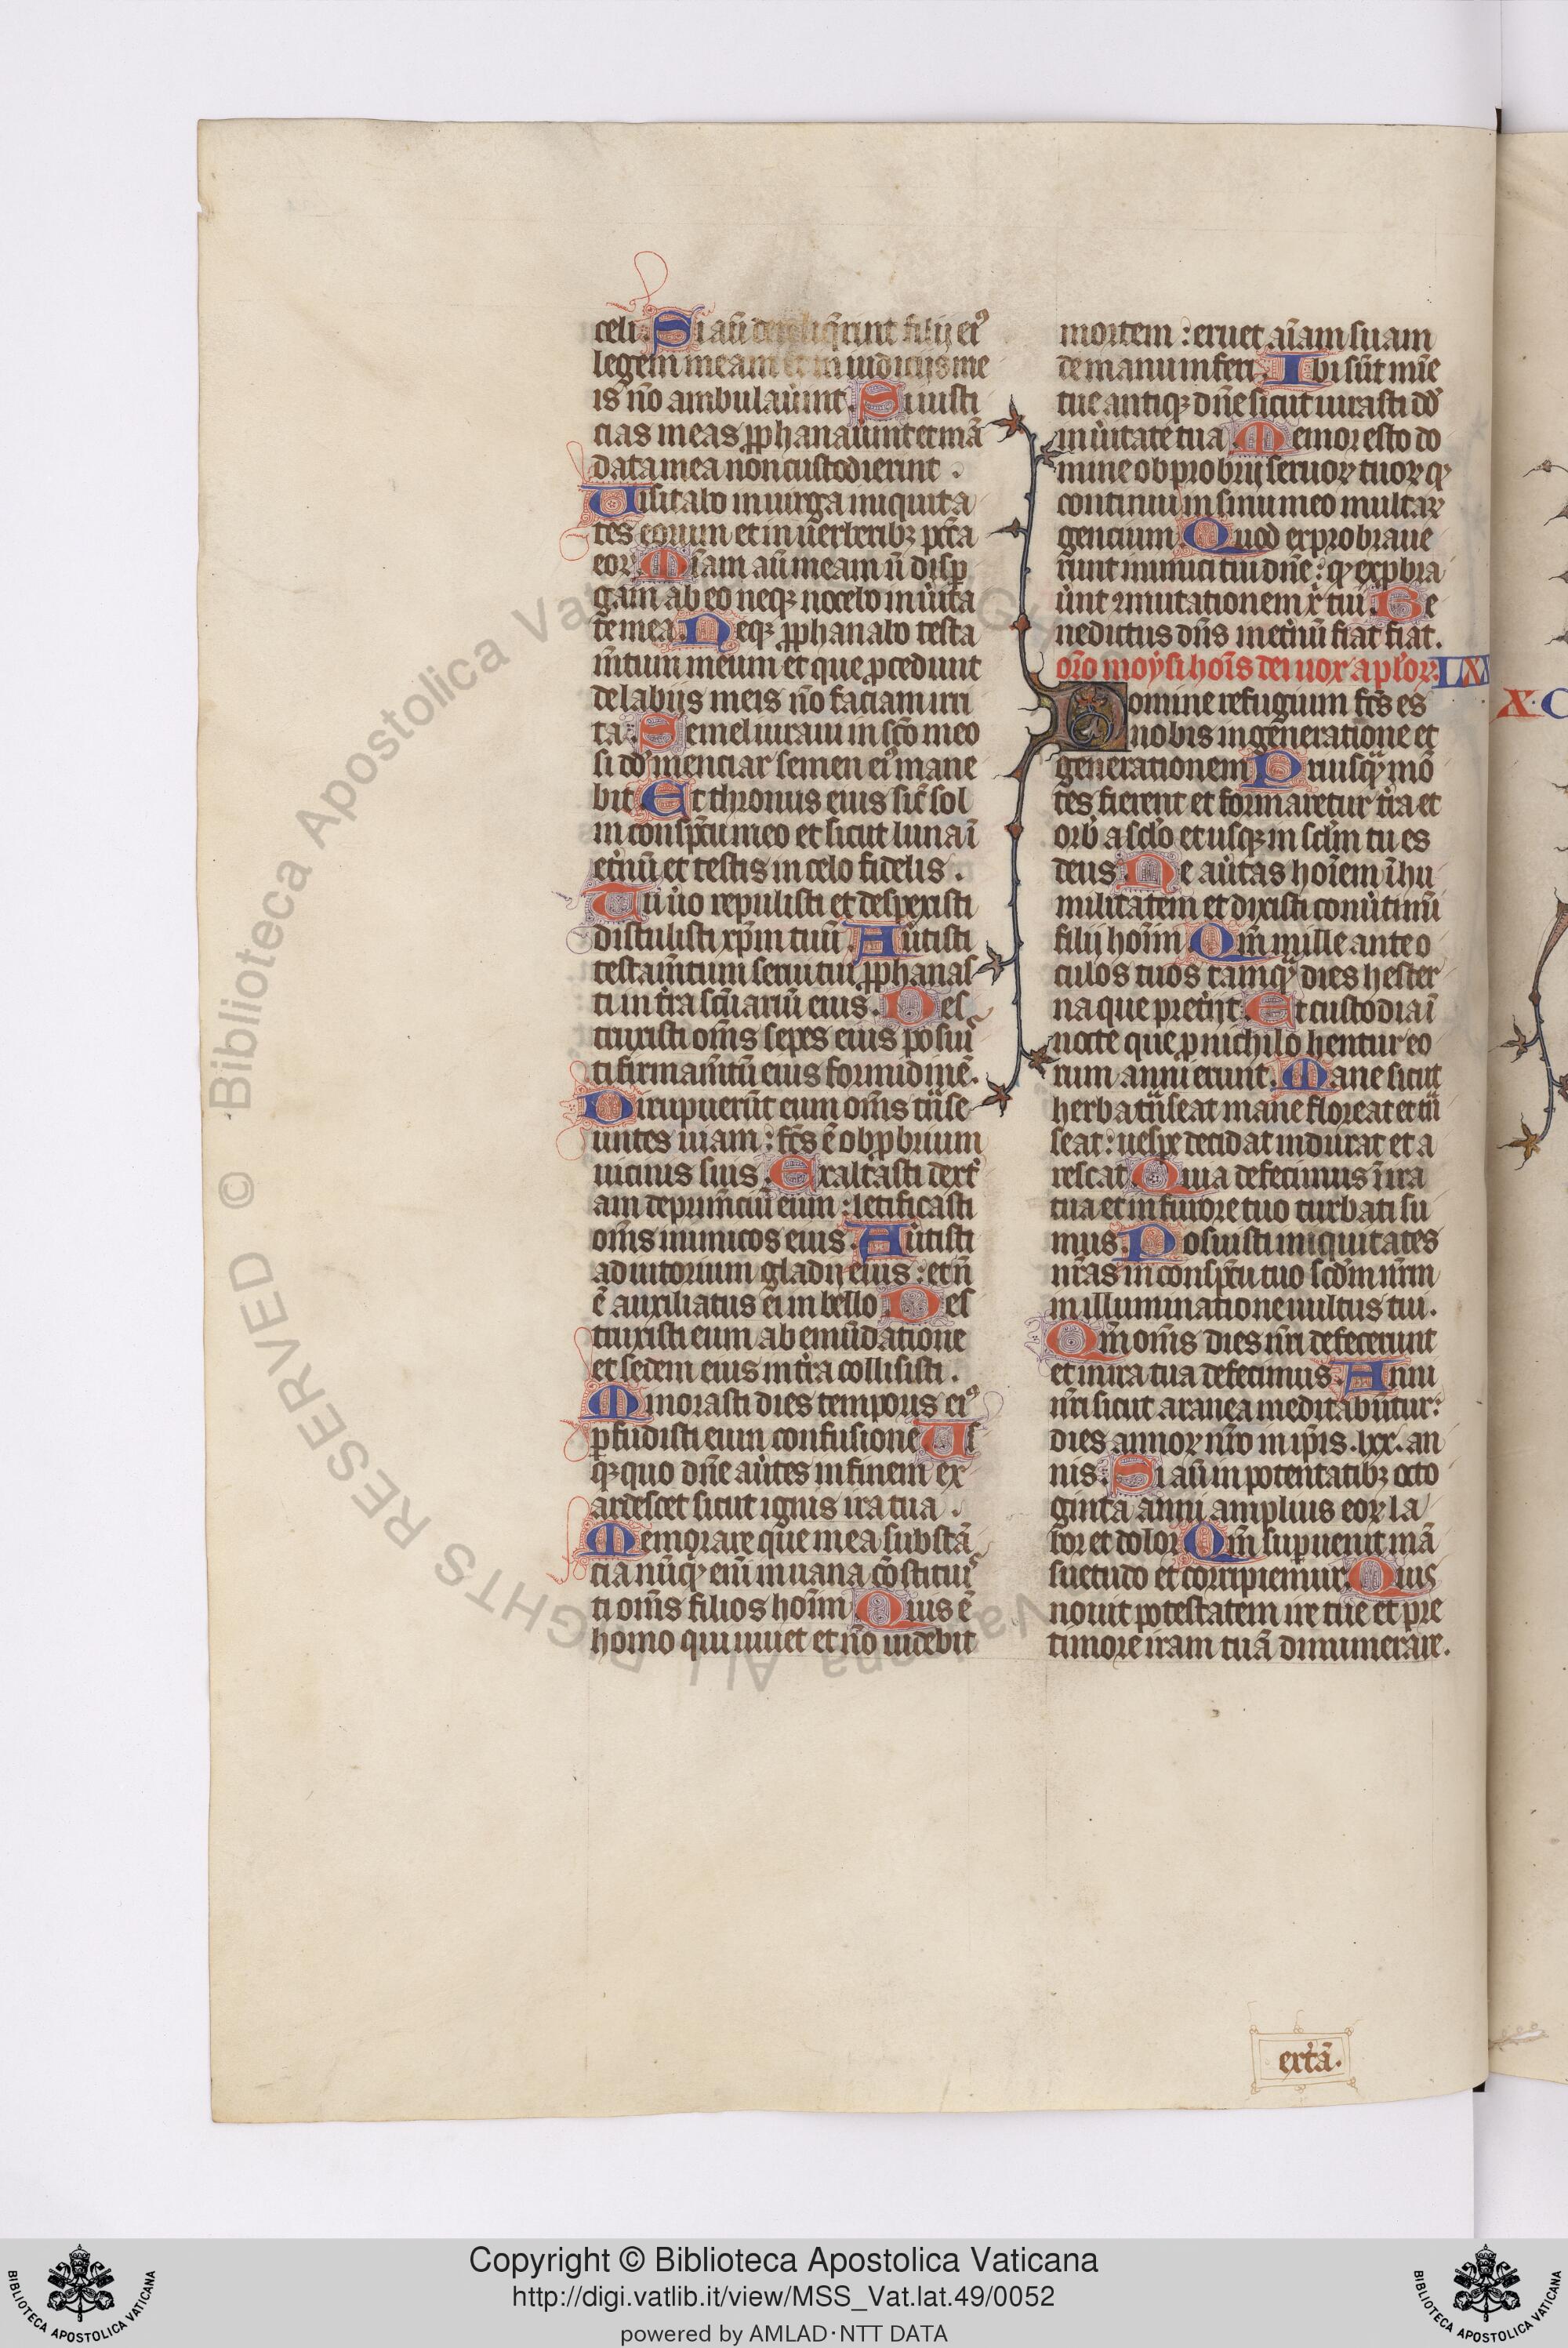 celi. Si aũt dereliq̃rint filij ei⁹
legem meam et in iudicijs me
is nõ ambulau̾int. Si iusti
cias meas ꝓphanauerint et mã
data mea non custodierint.
Uisitabo in uirga iniquita
tes eorum et in ũerberibꝫ pctã
eoꝝ. Miam aũ meam ñ disꝑ
gam ab eo neqꝫ nocebo in ũita
te mea. Neqꝫ ꝓphanabo testa
m̃tum meum et que ꝓcedunt
de labijs meis nõ faciam irri
ta. Semel iuraui in scõ meo
si dd̾ menciar semen ei⁹ mane
bit. Et thronus eius sic̃ sol
in conspc̃u meo et sicut luna ĩ
et̾nũ et testis in celo fidelis.
Tu ũo repulisti et despexisti
distulisti xp̃m tuũ. Au̾tisti
testam̃tum serui tui ꝓphanas
ti in t̾ra sc̃uariũ eius. Des
truxisti om̃s sepes eius posuis
ti firmam̃tũ eius formidinẽ.
Diripuerũt eum om̃s t̃nse
untes uiam: fc̃s ẽ obꝓbrium
uicinis suis. Exaltasti dext̾
am deprim̃ciũ eum: letificasti
om̃s inimicos eius. Au̾tisti
adiutorium gladij eius: et ñ
ẽ auxiliatus ei in bello. Des
truxisti eum ab emũdatione
et sedem eius in t̾ra collisisti.
Minorasti dies temporis ei⁹
ꝑfudisti eum confusione. Us
qꝫ quo dñe au̾tes in finem ex
ardescet sicut ignis ira tua.
Memorare que mea substã
cia nũqͣ eni͂ in uana c̃stituis
ti om̃s filios hoĩm. Quis ẽ
homo qui uiuet et nõ uidebit
mortem: eruet aĩam suam
de manu inferi. Ibi sũt mĩe
tue antiqꝫ dñe sicut iurasti dd̾
in ũitate tua. Memor esto do
mine obprobrij seruoꝝ tuoꝝ qͣ
continui in sinu meo multaꝝ
gencium. Quod exprobraue
runt inimici tui dñe: qͣ exꝓbra
ũunt ɔmutationem x̾ tui. Be
nedictus dñs in et̾nũ fiat fiat.
orõ moysi hoĩs dei uox aplõꝝ. LXX
Domine refugium fc̃s es
nobis in generatione et
generationem. Priusqͣ mõ
tes fierent et formaretur t̾ra et
orb̾ a sclo et usqꝫ in sclm tu es
deus. Ne au̾tas hoĩem ĩ hu
militatem et dixisti conu̾timĩ
filij hoĩm. Qm̃ mille ante o
culos tuos tamqͣ dies hester
na que pret̾ijt. Et custodia ĩ
nocte que ꝓ nichilo hentur eo
rum anni erunt. Mane sicut
herba t̃nseat mane floreat et t̃n
seat: uesꝑe decidat induret et a
rescat. Quia defecimus ĩ ira
tua et in furore tuo turbati su
mus. Posuisti iniquitates
nr̃as in conspc̃u tuo scl̾m nr̃m
in illuminatione uultus tui.
Qm̃ om̃s dies nr̃i defecerunt
et in ira tua defecimus. Anni
nr̃i sicut aranea meditabũtur:
dies annoꝝ nr̃o in ip̃is .lxx. an
nis. Si aũ in potentatibꝫ octo
ginta anni amplius eoꝝ la
bor et dolor. Qm̃ suꝑuenit mã
suetudo et corripiemur. Quis
nouit potestatem ire tue et pre
timore iram tuã dinumerare.
ext̾ã.
X·C
© Biblioteca Apostolica Vaticana ALL RIGHTS RESERVED
Copyright © Biblioteca Apostolica Vaticana
http://digi.vatlib.it/view/MSS_Vat.lat.49/0052
powered by AMLAD·NTT DATA
BIBLIOTECA APOSTOLICA VATICANA
BIBLIOTECA APOSTOLICA VATICANA